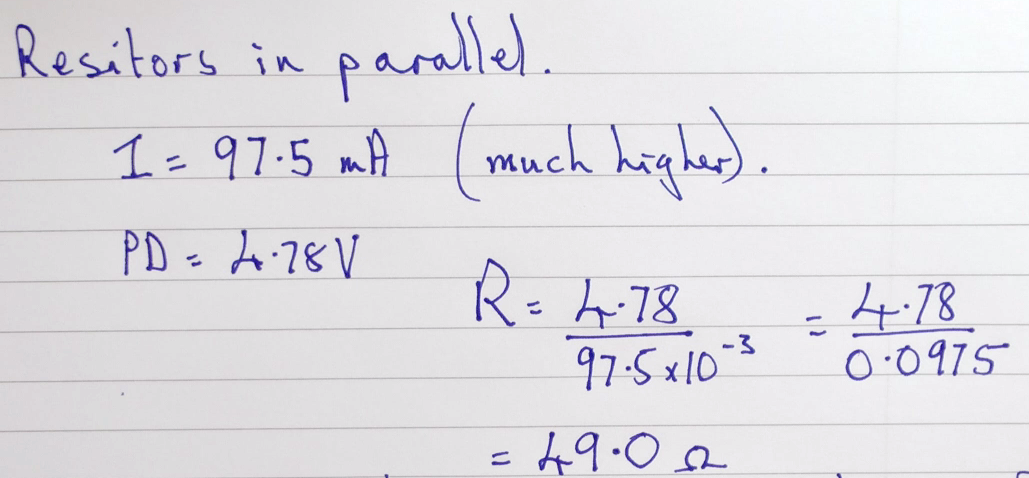 Resitors in parallel.
I = 97.5 mA (much higher).
PD = 4.78 V
R = 4.78 / 97.5 x 10^-3 = 4.78 / 0.0975
= 49.0 Ω